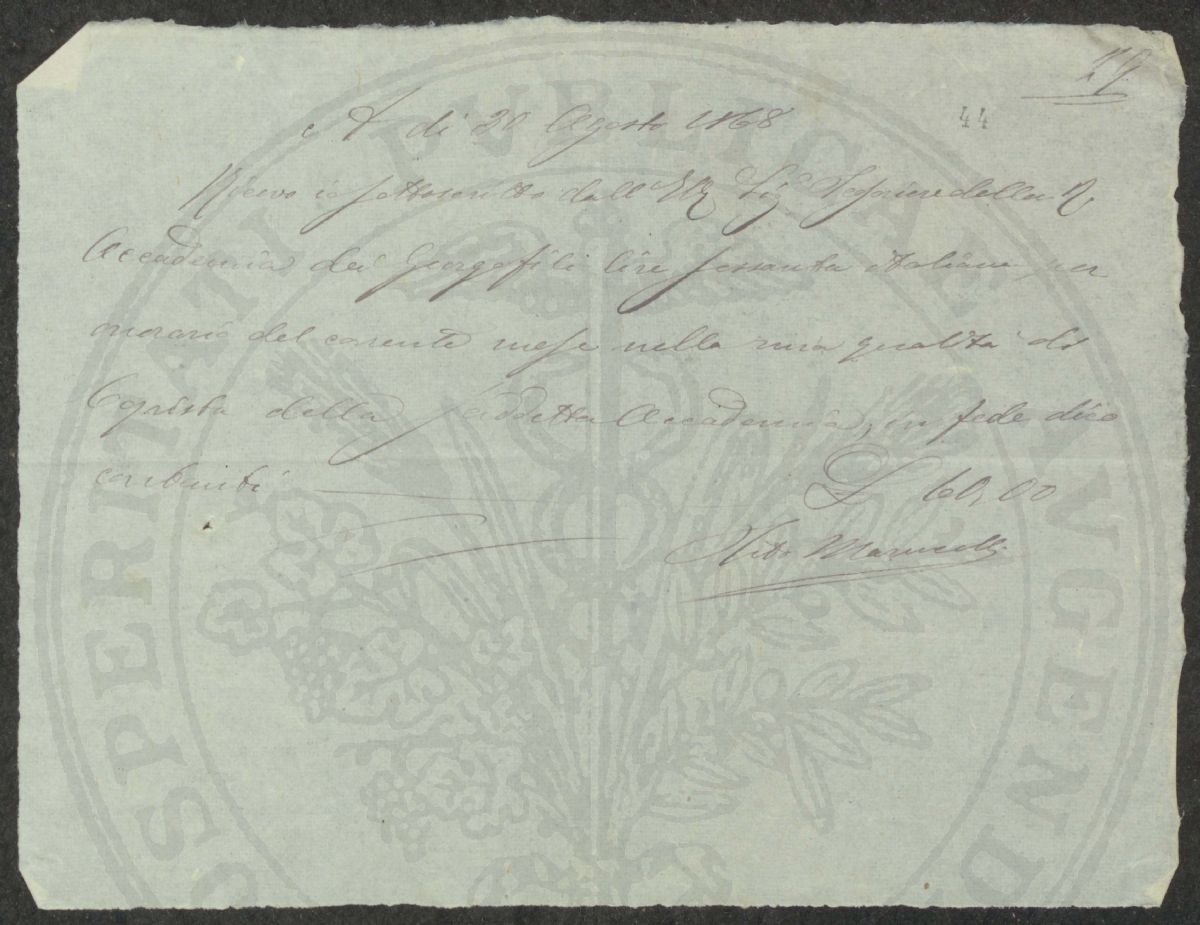 29.
44
A di 20 Agosto 1868
Ricevo io sottoscritto dall Sig.e della R
Accademia dei Georgofili lire sessanta italiane per
onorario del corente mese nella mia qualità di
Copista della sudetta Accademia, in fede dico
contanti £ 60,00
Vito Marucelli
PROSPERITATI PVBLICAE AVGENDAE